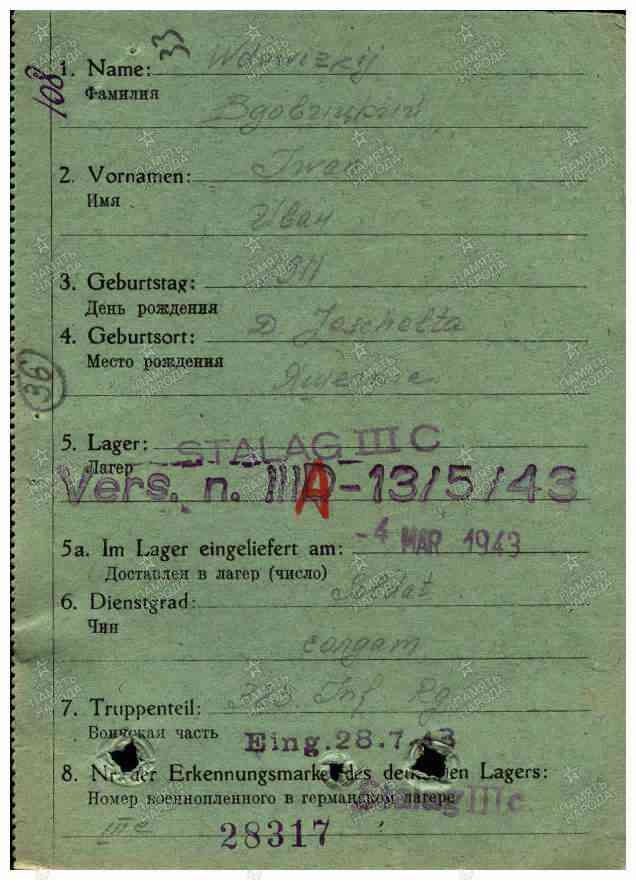 33
108
1. Name: Wdowizkij
Фамилия
Вдовицкий
2. Vornamen: Iwan
Имя
Иван
3. Geburtstag:
День рождения
4. Geburtsort: D.
Место рождения
36
5. Lager: STALAG III C
Лагер
Vers. n. III A -13/5/43
5a. Im Lager eingeliefert am: -4 MAR 1943
Доставлен в лагер (число)
6. Dienstgrad: Soldat
Чин
солдат
7. Truppenteil: Inf Rg
Воинская часть
Eing. 28.7.43
8. Nr. der Erkennungsmarke des deutschen Lagers:
Номер военнопленного в германском лагере
Stalag III c
III c 28317
ПАМЯТЬ НАРОДА